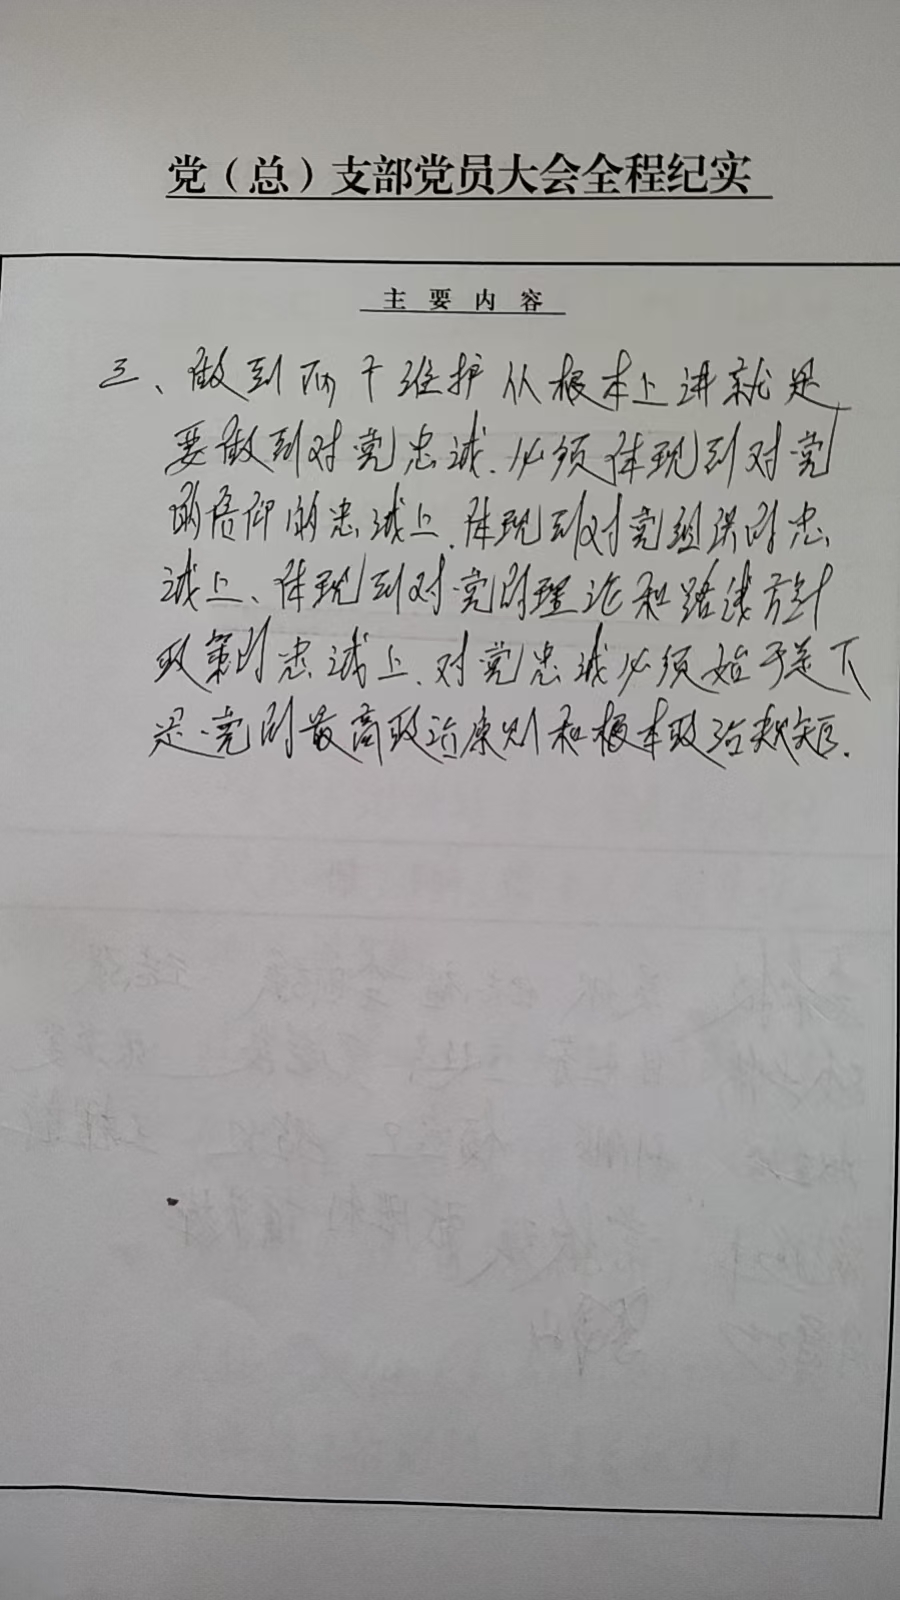 党（总）支部党员大会全程纪实
主要内容
三、做到两个维护从根本上讲就是
要做到对党忠诚.必须体现到对党
的信仰的忠诚上.体现到对党组织的忠
诚上、体现到对党的理论和路线方针
政策的忠诚上.对党忠诚必须始于足下
是党的最高政治原则和根本政治规矩.